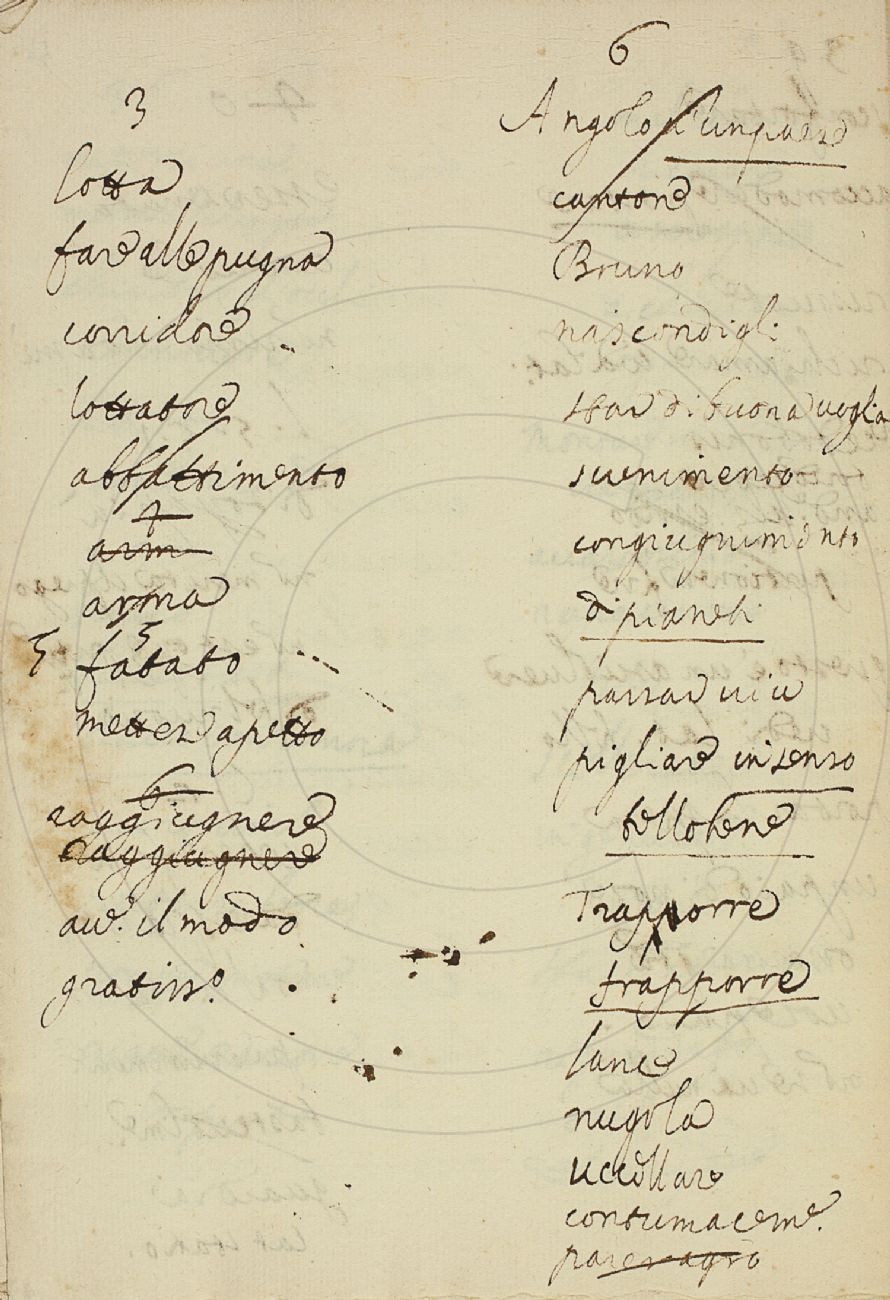 3
lotta
fare alle pugna
corridore
lottatore
abbattimento
arm
arma
3 fatato
metter a petto
6
raggiugnere
raggiugnere
avv. il modo
gratiss.o
6
Angolo d'un paese
cantone
Bruno
nascondigli
star di buona voglia
svenimento
congiugnimento
di pianeti
passar via
pigliare in senso
Trapporre
frapporre
lance
nugola
uccellare
contumaceme.